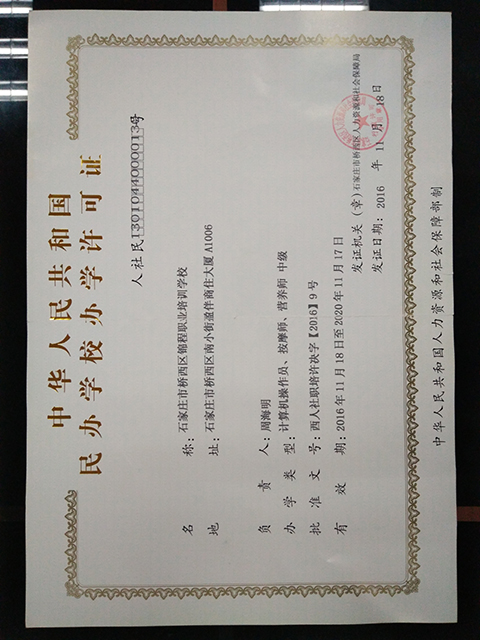 中华人民共和国
民办学校办学许可证
人社民130104400000139号
名称：石家庄市桥西区锦程职业培训学校
地址：石家庄市桥西区南小街盈伴商住大厦A1006
负责人：周海明
办学类型：计算机操作员、按摩师、营养师 中级
批准文号：西人社职培许决字【2016】9号
有效期：2016年11月18日至2020年11月17日
发证机关（章）石家庄市桥西区人力资源和社会保障局
发证日期：2016 年 11 月 18日
中华人民共和国人力资源和社会保障部制